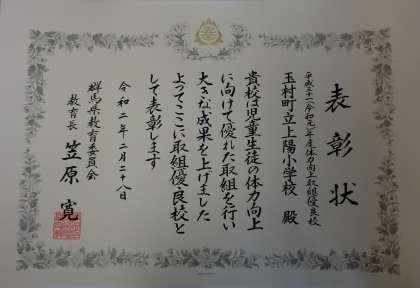 表彰状
平成三十一(令和元)年度体力向上取組優良校
玉村町立上陽小学校 殿
貴校は児童生徒の体力向上
に向けて優れた取組を行い
大きな成果を上げました
よってここに取組優良校と
して表彰します
令和二年二月二十八日
群馬県教育委員会
教育長 笠原 寛